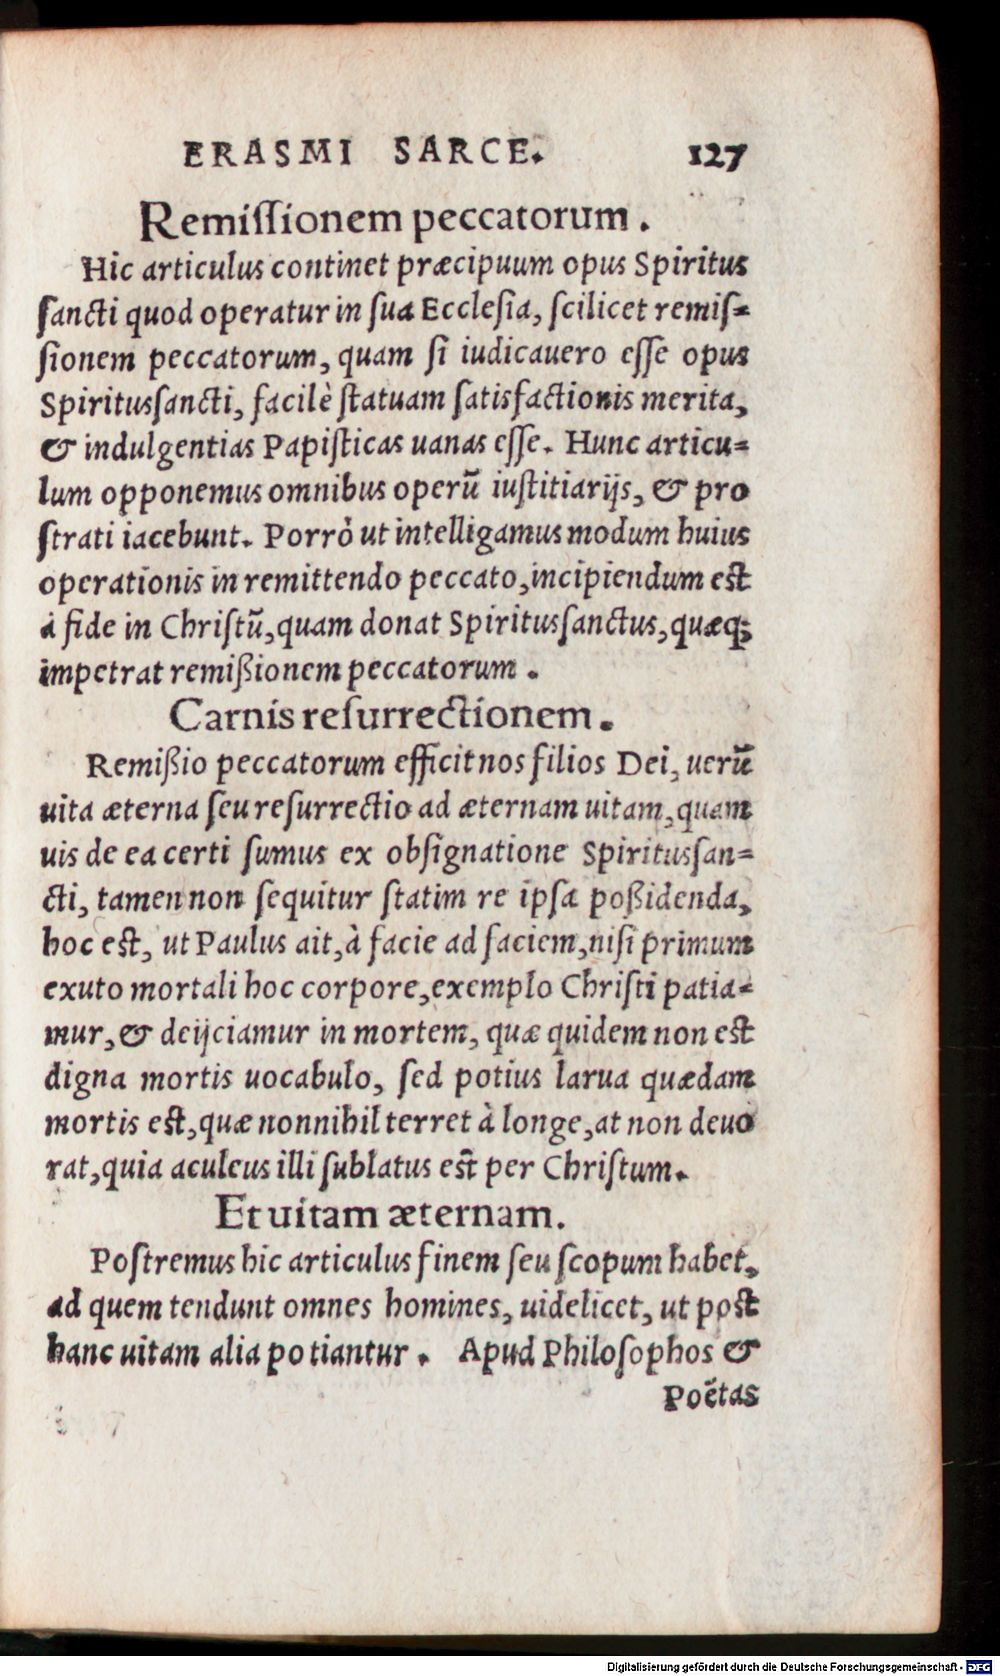 ERASMI SARCE. 127
Remiſſionem peccatorum.
Hic articulus continet præcipuum opus Spiritus
ſancti quod operatur in ſua Eccleſia, ſcilicet remiſ-
ſionem peccatorum, quam ſi iudicauero eſſe opus
Spiritusſancti, facilè ſtatuam ſatisfactionis merita,
& indulgentias Papiſticas uanas eſſe. Hunc articu-
lum opponemus omnibus operũ iuſtitiarijs, & pro
ſtrati iacebunt. Porrò ut intelligamus modum huius
operationis in remittendo peccato, incipiendum est
à fide in Chriſtũ, quam donat Spiritusſanctus, quæq;
impetrat remißionem peccatorum.
Carnis reſurrectionem.
Remißio peccatorum efficit nos filios Dei, uerũ
uita æterna ſeu reſurrectio ad æternam uitam, quam
uis de ea certi ſumus ex obſignatione Spiritusſan-
cti, tamen non ſequitur ſtatim re ipſa poßidenda,
hoc eſt, ut Paulus ait, à facie ad faciem, niſi primum
exuto mortali hoc corpore, exemplo Chriſti patia-
mur, & deijciamur in mortem, quæ quidem non eſt
digna mortis uocabulo, ſed potius larua quædam
mortis eſt, quæ nonnihil terret à longe, at non deuo
rat, quia aculeus illi ſublatus eſt per Chriſtum.
Et uitam æternam.
Poſtremus hic articulus finem ſeu ſcopum habet,
ad quem tendunt omnes homines, uidelicet, ut poſt
hanc uitam alia potiantur. Apud Philoſophos &
Poẽtas
Digitalisierung gefördert durch die Deutsche Forschungsgemeinschaft - DFG